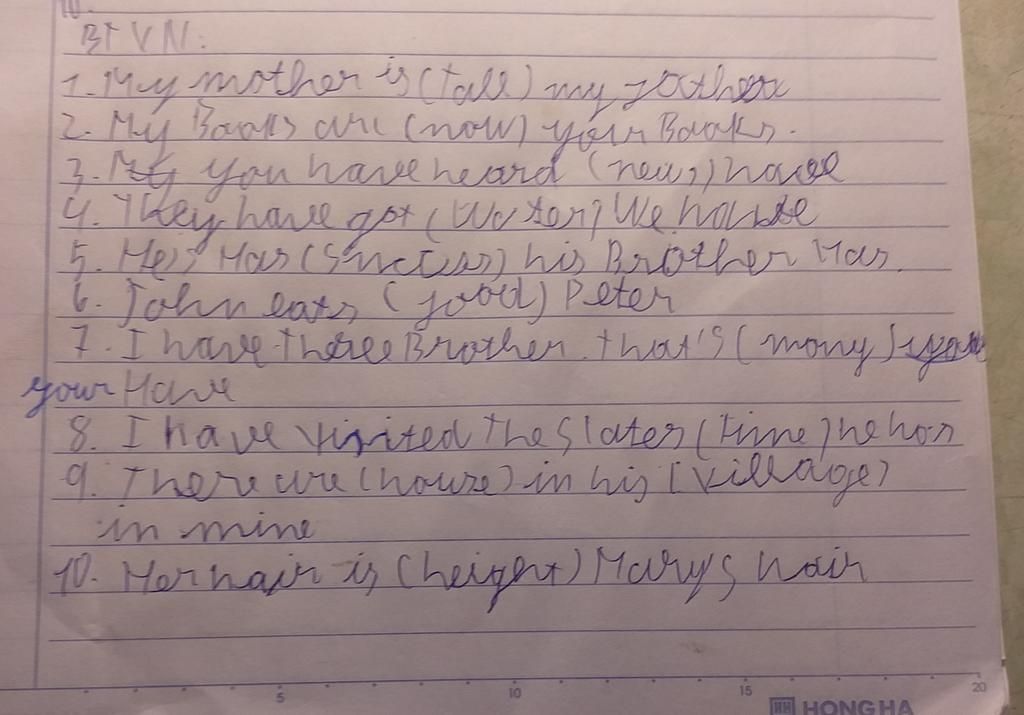 10.
BTVN:
1. My mother is (tall) my father
2. My Books are (now) your Books.
3. My you have heard (news) have
4. They have got (Water) we house
5. He's Has (Success) his Brother Has.
6. John eats (food) Peter
7. I have three Brother. that's (many)
your Have
8. I have visited the States (time) he has
9. There are (house) in his (village)
in mine
10. Her hair is (height) Marys hair
5 10 15 20
HONG HA